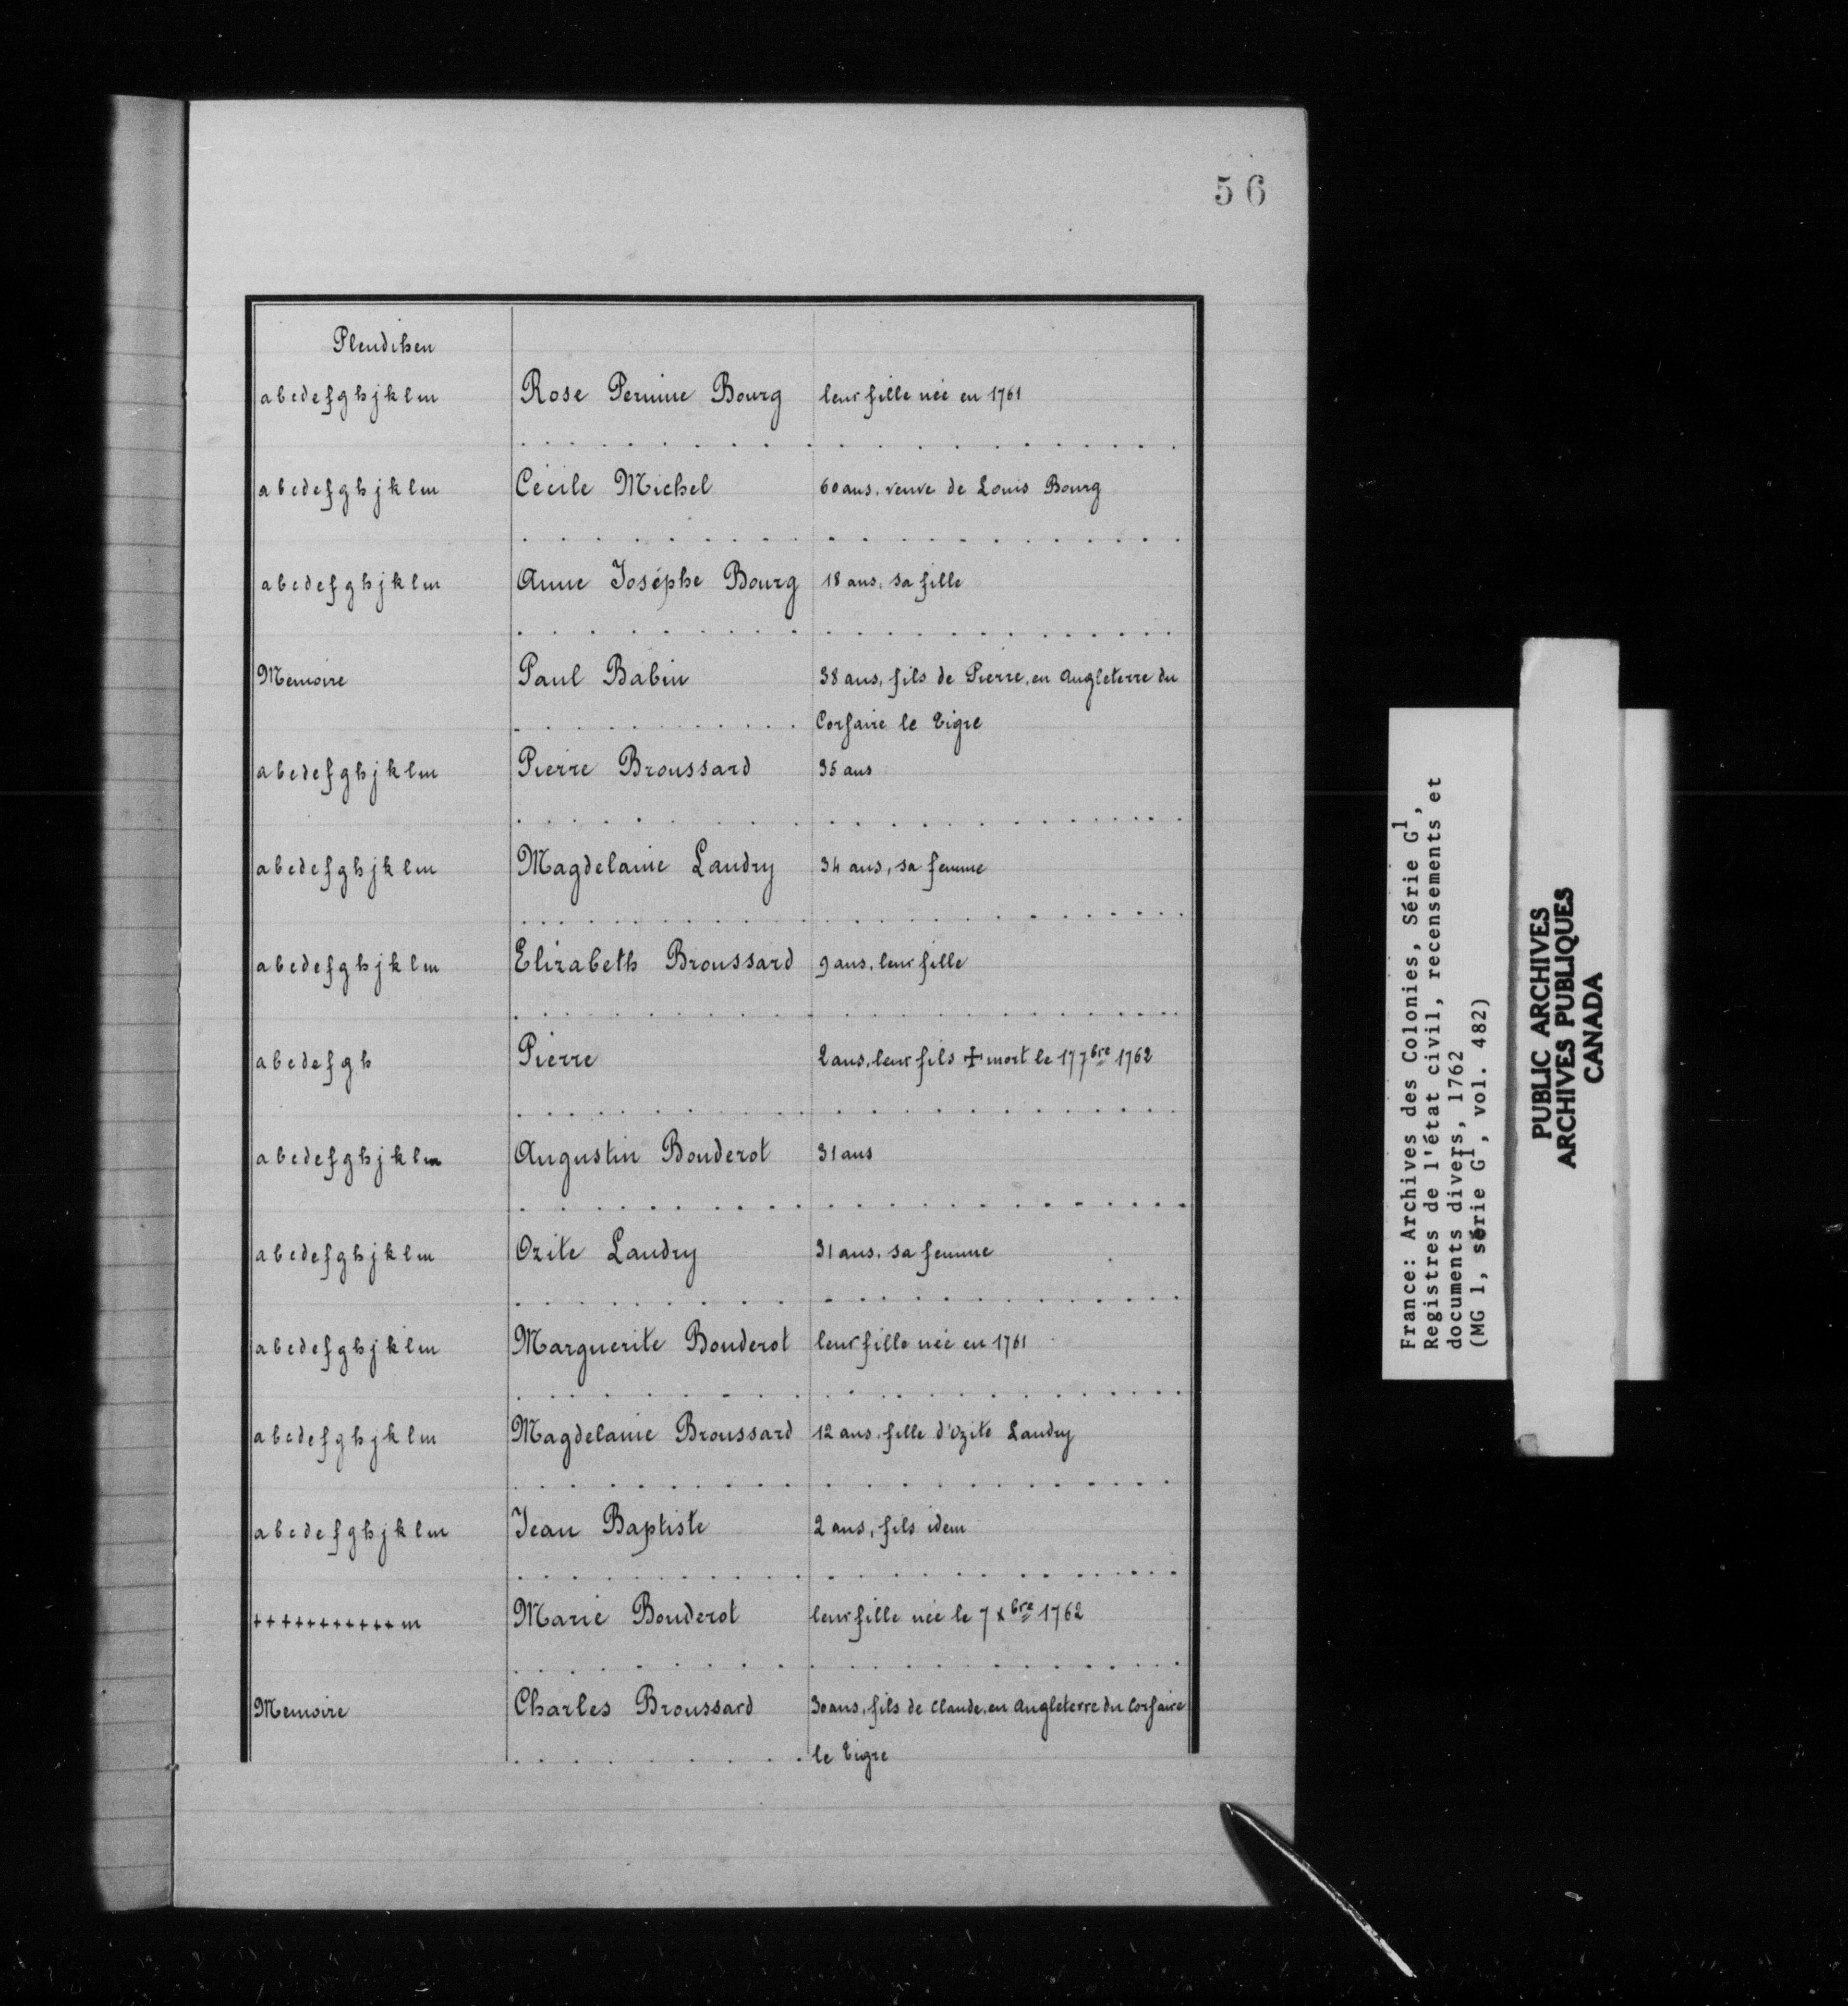 56
Pleudihen
abcdefghjklm Rose Perrine Bourg leur fille née en 1761
abcdefghjklm Cécile Michel 60 ans, veuve de Louis Bourg
abcdefghjklm Anne Joséphe Bourg 18 ans, sa fille
Memoire Paul Babin 38 ans, fils de Pierre, en Angleterre du
Corsaire le Tigre
abcdefghjklm Pierre Broussard 35 ans
abcdefghjklm Magdelaine Landry 34 ans, sa femme
abcdefghjklm Elizabeth Broussard 9 ans, leur fille
abcdefgh Pierre 2 ans, leur fils + mort le 17 7bre 1762
abcdefghjklm Augustin Bouderot 31 ans
abcdefghjklm Ozite Landry 31 ans, sa femme
abcdefghjklm Marguerite Bouderot leur fille née en 1761
abcdefghjklm Magdelaine Broussard 12 ans, fille d'Ozite Landry
abcdefghjklm Jean Baptiste 2 ans, fils idem
+++++++++++m Marie Bouderot leur fille née le 7 xbre 1762
Memoire Charles Broussard 30 ans, fils de Claude, en Angleterre du Corsaire
le Tigre
France: Archives des Colonies, Série G1,
Registres de l'état civil, recensements et
documents divers, 1762
(MG 1, série G1, vol. 482)
PUBLIC ARCHIVES
ARCHIVES PUBLIQUES
CANADA